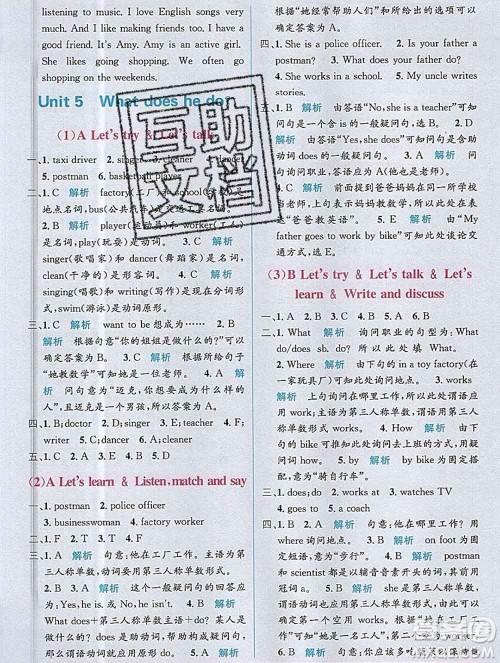 listening to music. I love English songs very
much. I like making friends too. I have a
good friend. It's Amy. Amy is an active girl.
She likes going shopping. We often go
shopping on the weekends.
Unit 5 What does he do?
(1)A Let's try & Let's talk
一、1. taxi driver 2. singer 3. cleaner 4. dancer
5. postman 6. basketball player
二、1. C 解析 factory(工厂)和 school(学校)是
地点名词,bus(公共汽车)是交通工具名词。
2. C 解析 player(运动员)和 worker(工人)
是名词,play(玩耍)是动词。 3. C 解析
singer(歌手)和 dancer(舞蹈家)是名词,
great(好的)是形容词。 4. C 解析
singing(唱歌)和 writing(写作)是现在分词形
式,swim(游泳)是动词形式。
三、1. C 解析 want to be 想成为…… 2. B
解析 根据问句意“你的姐姐是做什么的?”可以
确定答案为 B。 3. C 解析 根据所给句子
“她教数学”可知她是一位老师。 4. A
解析 问句意为“迈克,你想要成为什么样的
人”,且迈克是男孩子,所以答案为 A。
四、1. B;doctor 2. D;singer 3. E;teacher 4. F;
writer 5. C;dancer 6. A;cleaner
五、1. A 2. B 3. A 4. B
(2)A Let's learn & Listen,match and say
一、1. postman 2. police officer
3. businesswoman 4. factory worker
二、1. A 解析 句意:他在工厂工作。主语为第
三人称单数,动词要用第三人称单数形式。
2. A 解析 这个一般疑问句的回答应
为:Yes,he is. 或 No,he isn't. 3. C 解析
What does+第三人称单数主语+do? 是特
殊疑问句,does 是助动词,帮助构成疑问句,
第二个 do 是实义动词。 4. B 解析
根据“她经常帮助人们”和所给的选项可以
确定答案为 A。
四、1. She is a police officer. 2. Is your father a
postman? 3. What does your father do?
4. She works in a school. 5. My uncle writes
stories.
五、1. B 解析 由答语“No, she is a teacher”可
知,问句是含有 be 动词的一般疑问句。
2. A 解析 由答语“Yes, she does”可知问
句是含助动词 does 的一般疑问句,所以
答语应为 A(他是老师)。
3. C 解析 前面提到爸爸妈妈在同一所学
校工作,且爸爸教数学,所以应该选择 C
(爸爸教英语)。 4. B 解析 由“My father
goes to work by bike”可知此处谈论交通
方式。
(3)B Let's try & Let's talk & Let's
learn & Write and discuss
一、1. A 2. B 3. C 4. C
二、1. What 解析 询问职业的句型为:What
do/does sb. do? 所以此处用 What。
2. Where 解析 由下句的 in a toy factory(在
一家玩具厂)可知此处询问地点。 3. work 解析
上句询问工作地点,所以此处谓语应
用 work;主语为第三人称单数,谓语用第三人
称单数形式,所以应用 works。 4. How 解析 由下
句的 bike 可知此处询问去上班的方式。
5. by 解析 by bike 为固定搭配,
意为“骑自行车”。
三、1. closes 2. going 3. worked 4. watches TV
5. coaches
四、1. B 解析 句意:你在哪里工作? 用
where 询问。 2. B 解析 on foot 为固定
搭配,意为“步行”。 3. C 解析 postman 和
scientist 是以辅音音素开头的词,故用
a。 4. B 解析 主语为第三人称单数,
谓语动词也应用第三人称单数形式。
互助文档